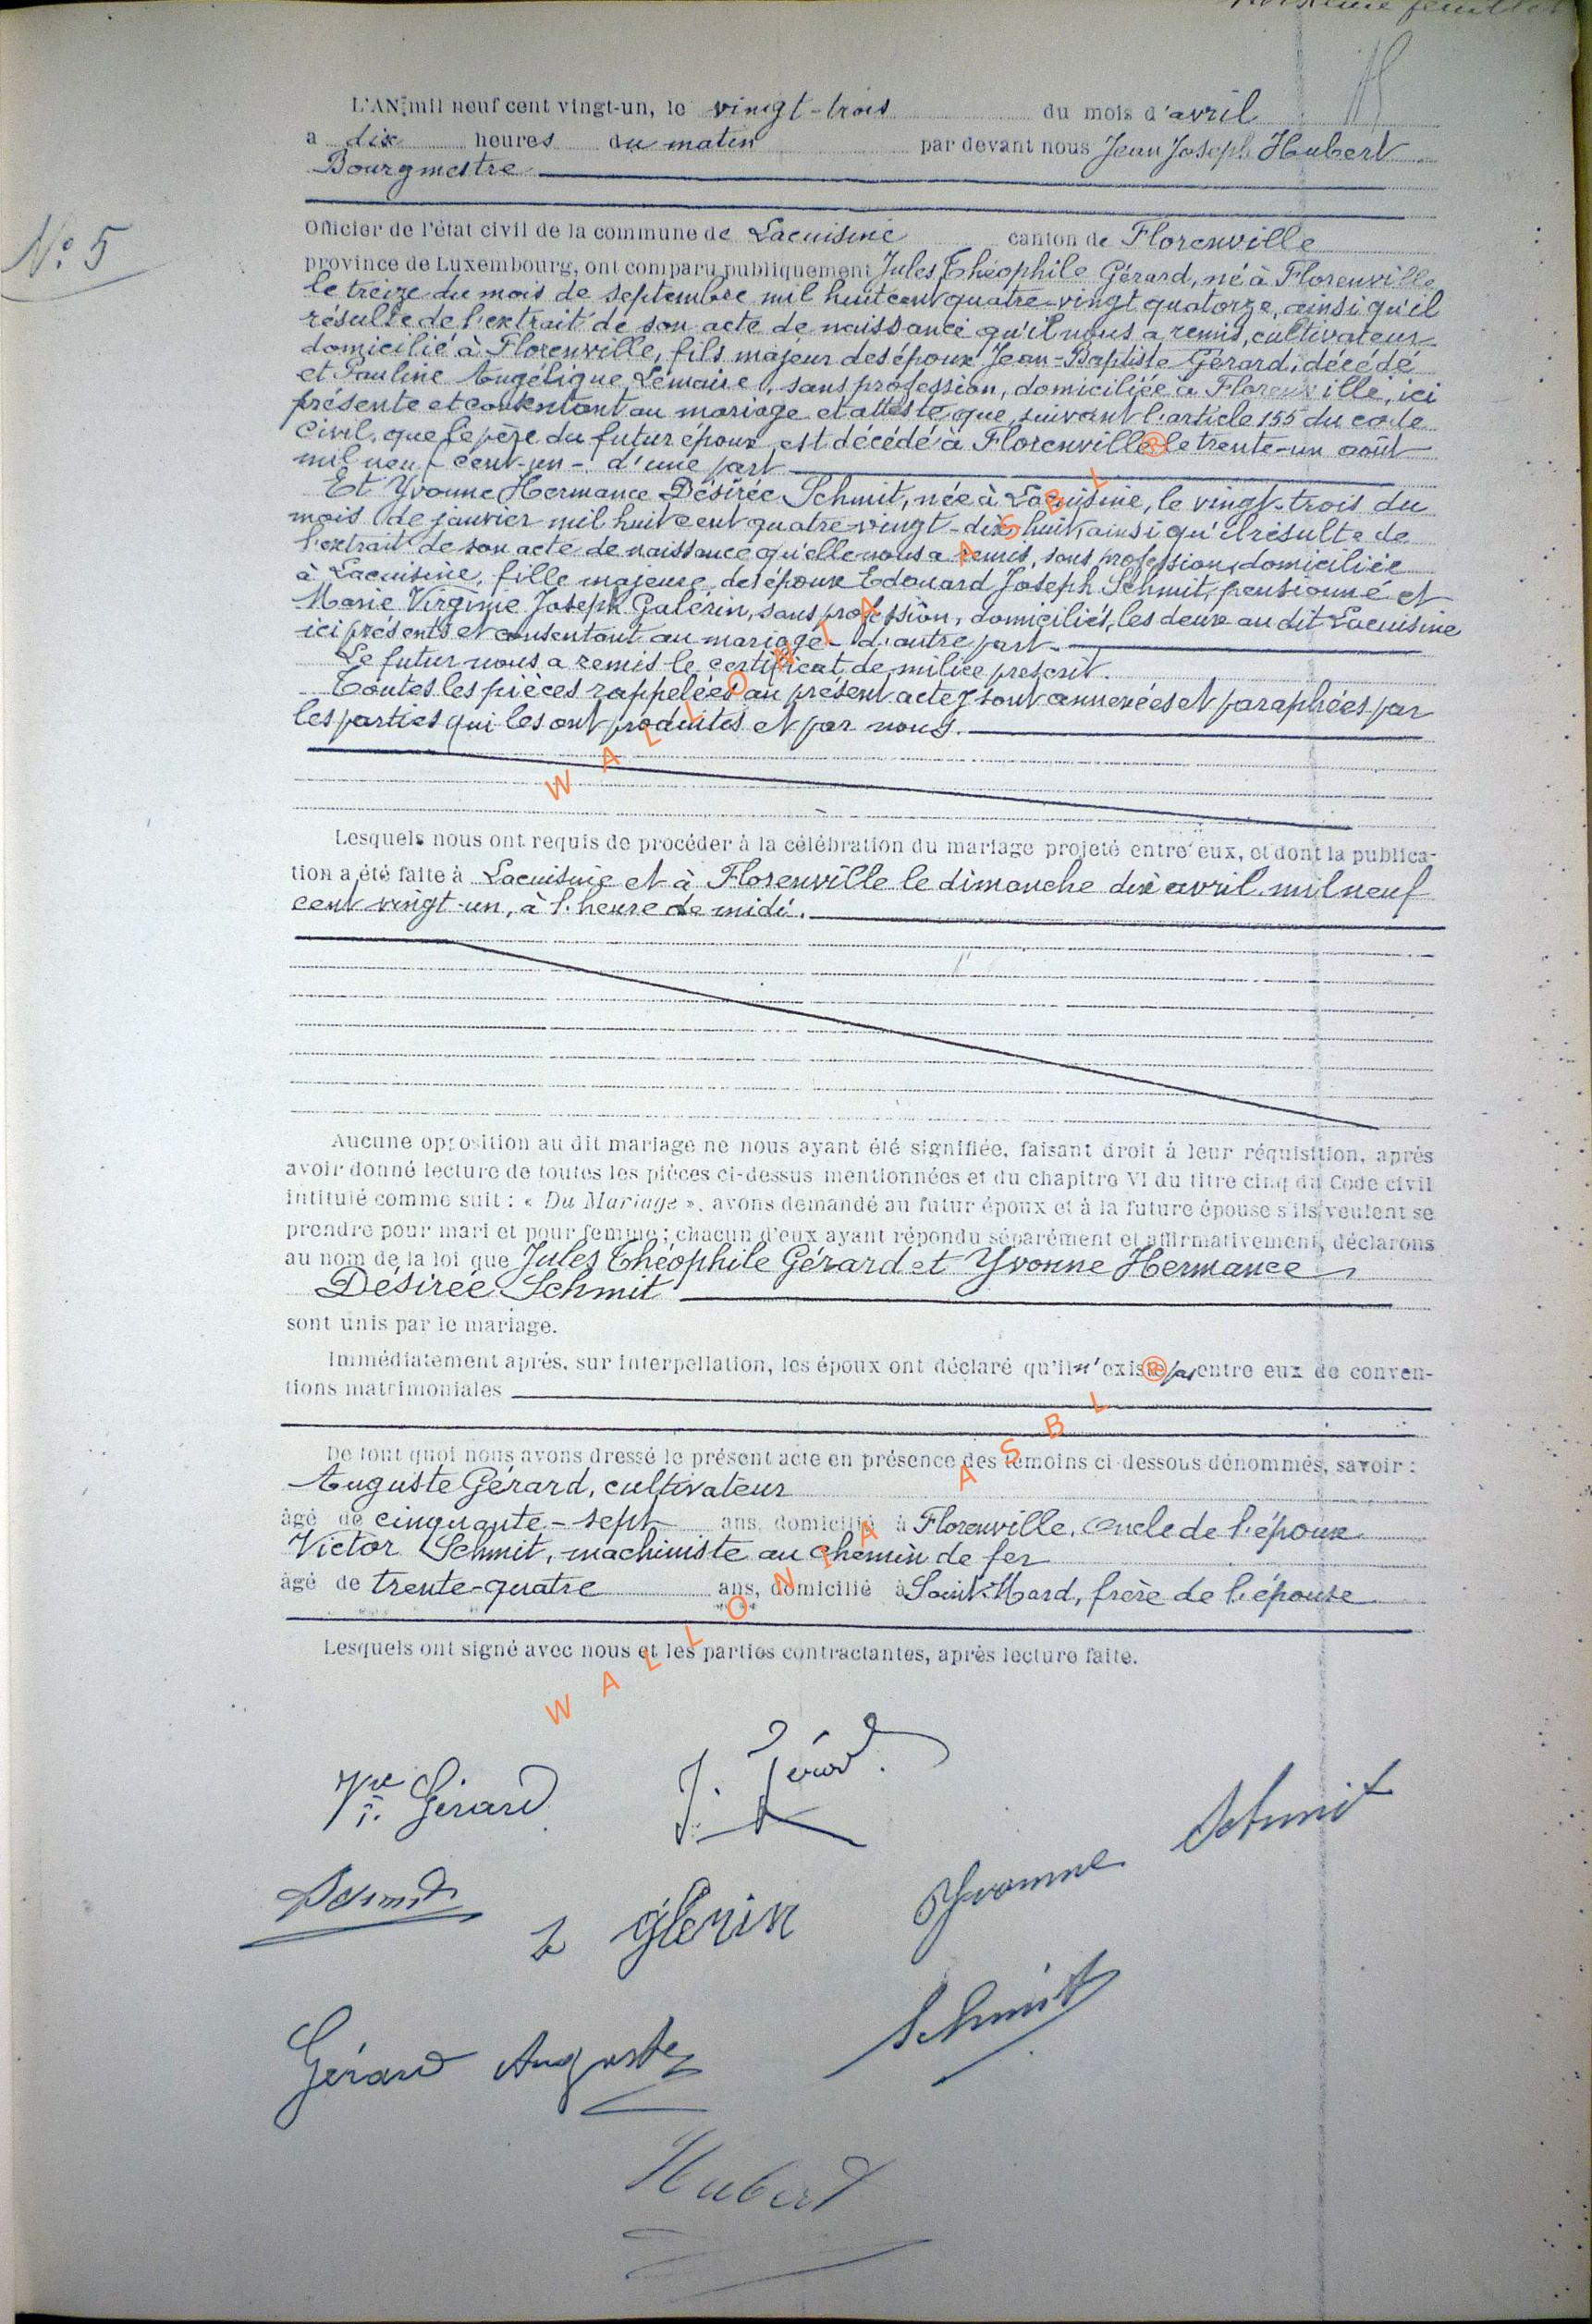 feuillet
L'AN mil neuf cent vingt-un, le vingt-trois du mois d'avril
a dix heures du matin par devant nous Jean Joseph Hubert
Bourgmestre
N° 5
Officier de l'état civil de la commune de Lacuisine canton de Florenville
province de Luxembourg, ont comparu publiquement Jules Théophile Gérard, né à Florenville
le treize du mois de septembre mil huit cent quatre-vingt quatorze, ainsi qu'il
résulte de l'extrait de son acte de naissance qu'il nous a remis, cultivateur
domicilié à Florenville, fils majeur des époux Jean-Baptiste Gérard, décédé
et Pauline Angélique Lemaire, sans profession, domiciliée à Florenville, ici
présente et consentant au mariage et atteste que suivant l'article 155 du code
Civil, que le père du futur époux est décédé à Florenville le trente-un août
mil neuf cent-un - d'une part
Et Yvonne Hermance Désirée Schmit, née à Lacuisine, le vingt-trois du
mois de janvier mil huit cent quatre-vingt-dix huit, ainsi qu'il résulte de
l'extrait de son acte de naissance qu'elle nous a remis, sans profession, domiciliée
à Lacuisine, fille majeure des époux Edouard Joseph Schmit, pensionné et
Marie Virginie Joseph Galérin, sans profession, domiciliés, les deux au dit Lacuisine
ici présents et consentant au mariage - d'autre part.
Le futur nous a remis le certificat de milice prescrit.
Toutes les pièces rappelées au présent acte y sont annexées et paraphées par
les parties qui les ont produites et par nous.
Lesquels nous ont requis de procéder à la célébration du mariage projeté entre eux, et dont la publica-
tion a été faite à Lacuisine et à Florenville le dimanche dix avril mil neuf
cent vingt-un, à l'heure de midi.
Aucune opposition au dit mariage ne nous ayant été signifiée, faisant droit à leur réquisition, après
avoir donné lecture de toutes les pièces ci-dessus mentionnées et du chapitre VI du titre cinq du Code civil
intitulé comme suit : « Du Mariage », avons demandé au futur époux et à la future épouse s'ils veulent se
prendre pour mari et pour femme ; chacun d'eux ayant répondu séparément et affirmativement, déclarons
au nom de la loi que Jules Théophile Gérard et Yvonne Hermance
Désirée Schmit
sont unis par le mariage.
Immédiatement après, sur interpellation, les époux ont déclaré qu'il n'existe pas entre eux de conven-
tions matrimoniales
De tout quoi nous avons dressé le présent acte en présence des témoins ci-dessous dénommés, savoir :
Auguste Gérard, cultivateur
âgé de cinquante-sept ans, domicilié à Florenville, oncle de l'époux
Victor Schmit, machiniste au chemin de fer
âgé de trente-quatre ans, domicilié à Saint-Mard, frère de l'épouse
Lesquels ont signé avec nous et les parties contractantes, après lecture faite.
Vve Gérard J. Gérard
Yvonne Schmit
Schmit
Glérin
Gérard Auguste Schmit
Hubert
WALLONIA ASBL ®
WALLONIA ASBL ®